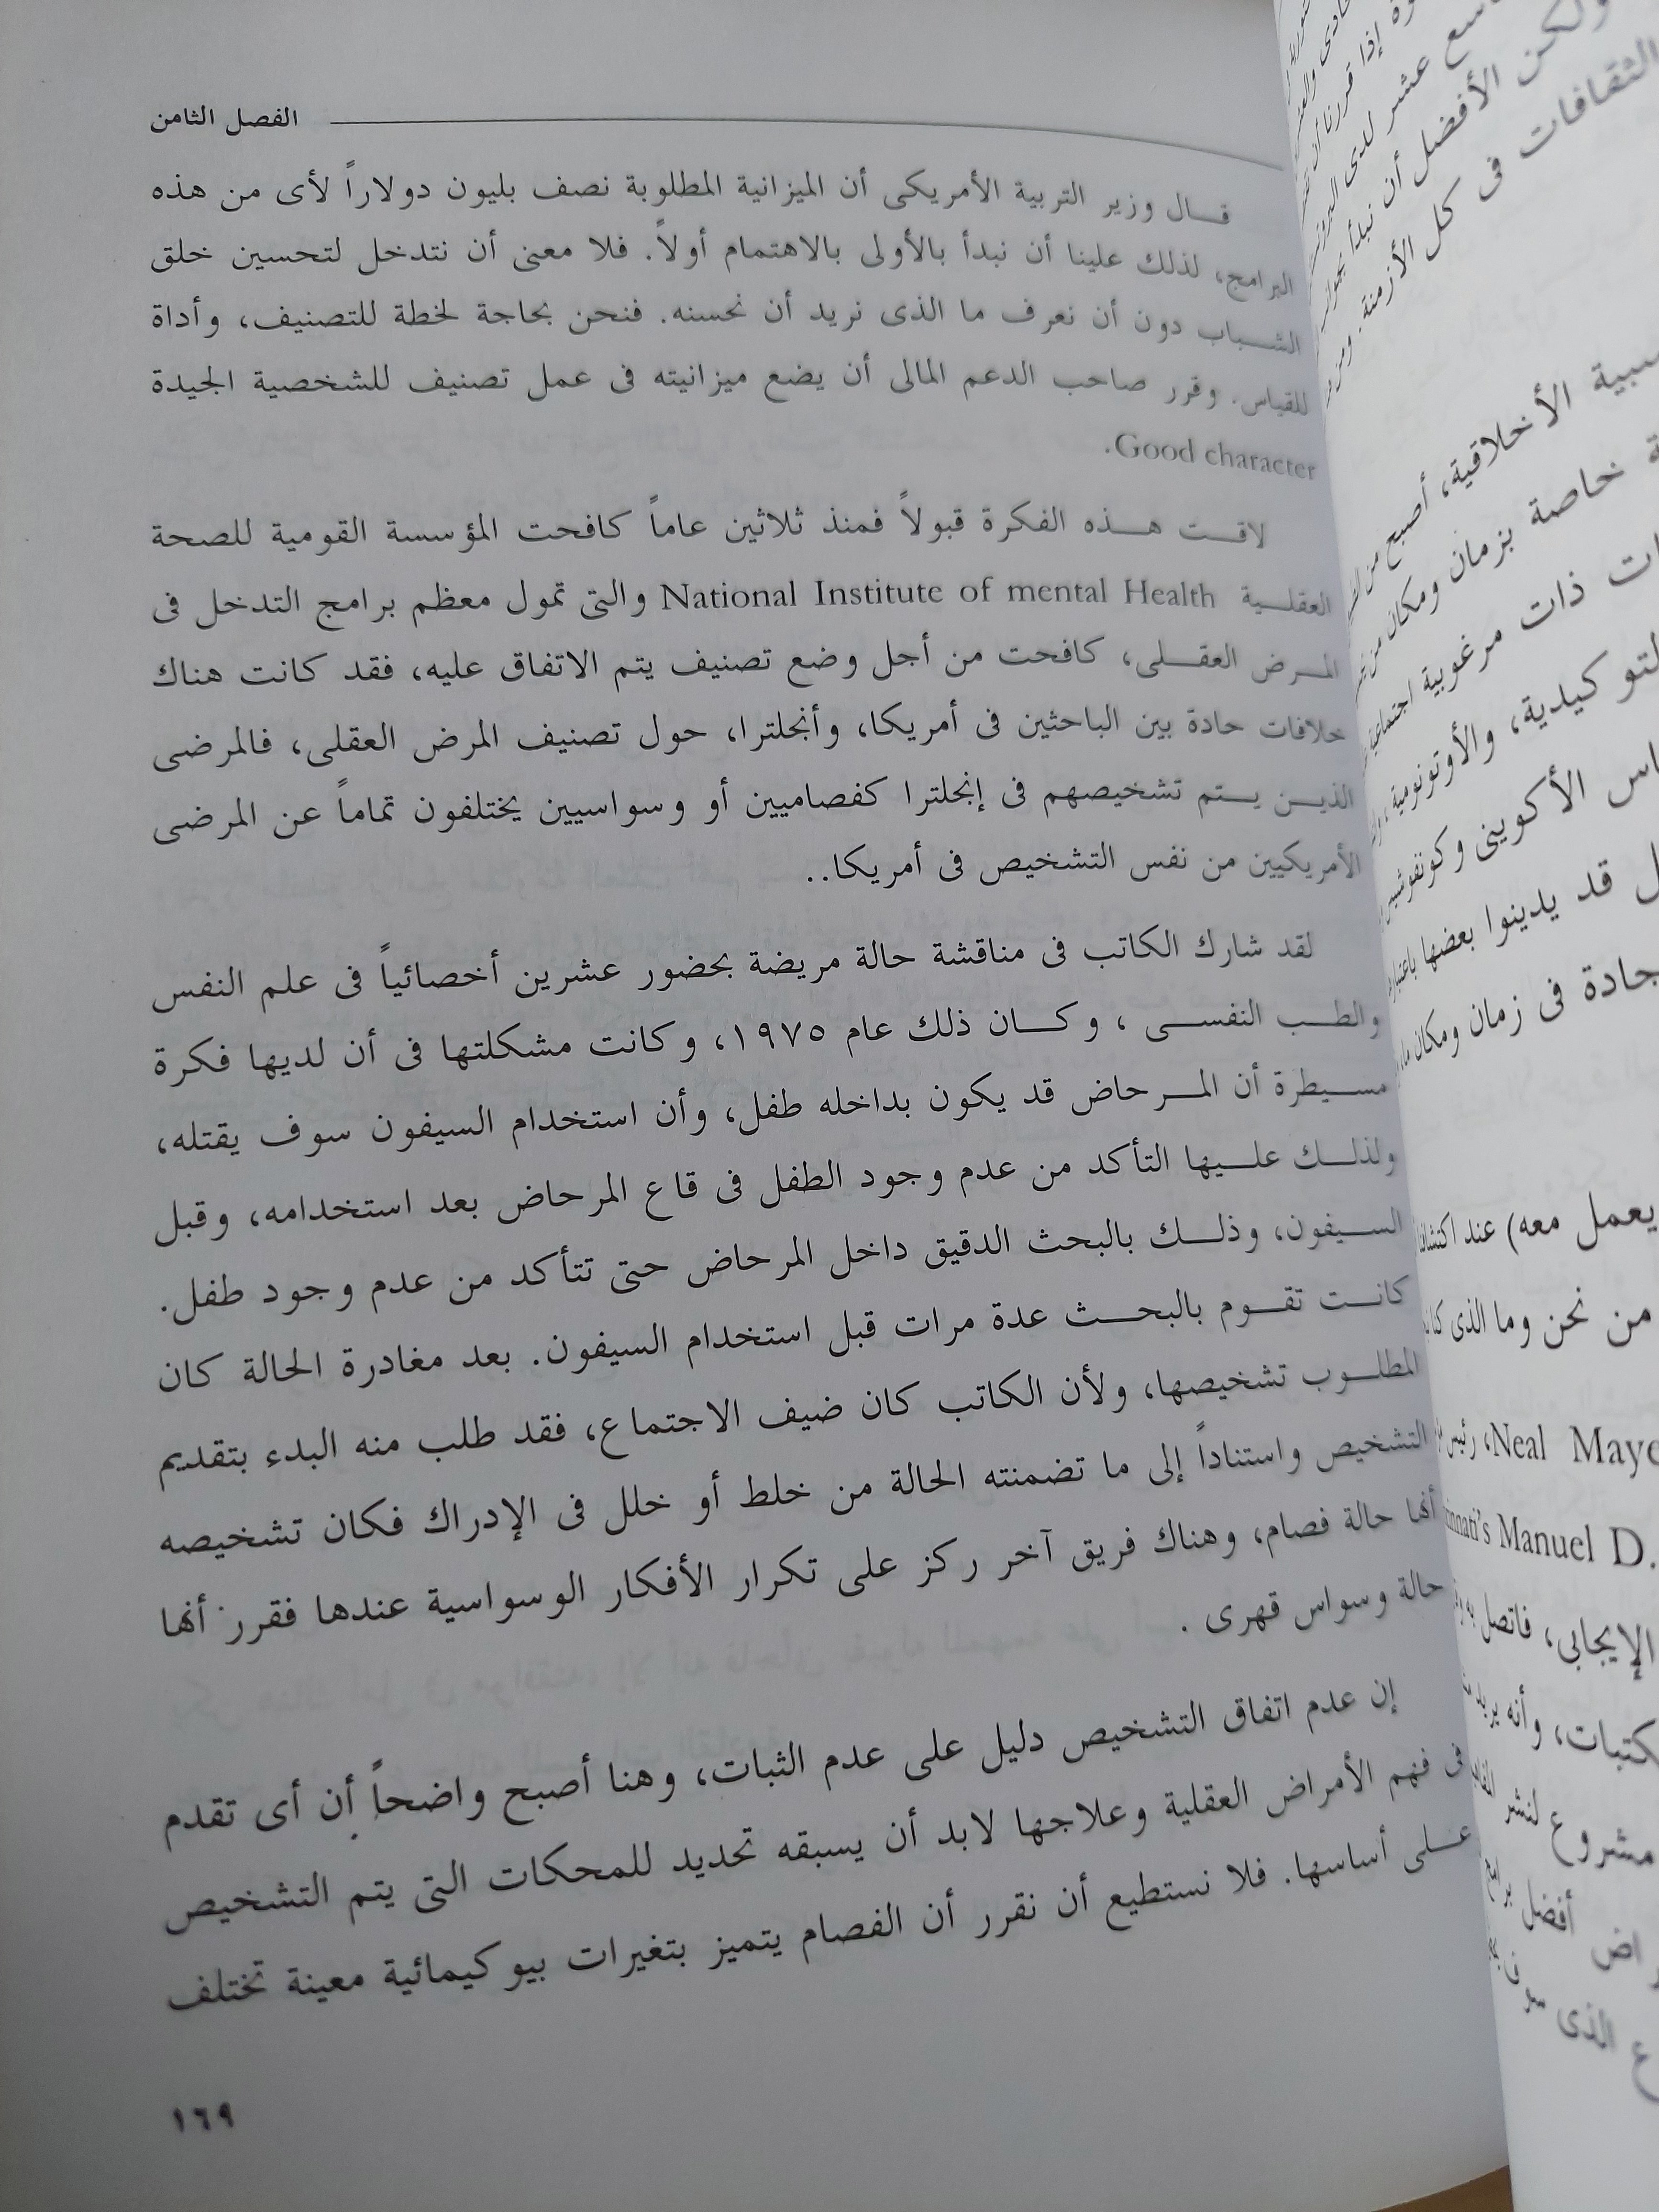 الفصل الثامن
قال وزير التربية الأمريكى أن الميزانية المطلوبة نصف بليون دولاراً لأى من هذه
البرامج، لذلك علينا أن نبدأ بالأولى بالاهتمام أولاً. فلا معنى أن نتدخل لتحسين خلق
الشباب دون أن نعرف ما الذى نريد أن نحسنه. فنحن بحاجة لخطة للتصنيف، وأداة
للقياس. وقرر صاحب الدعم المالى أن يضع ميزانيته فى عمل تصنيف للشخصية الجيدة
Good character.
لاقت هذه الفكرة قبولاً فمنذ ثلاثين عاماً كافحت المؤسسة القومية للصحة
العقلية National Institute of mental Health والتى تمول معظم برامج التدخل فى
المرض العقلى، كافحت من أجل وضع تصنيف يتم الاتفاق عليه، فقد كانت هناك
خلافات حادة بين الباحثين فى أمريكا، وأنجلترا، حول تصنيف المرض العقلى، فالمرضى
الذين يتم تشخيصهم فى إنجلترا كفصاميين أو وسواسيين يختلفون تماماً عن المرضى
الأمريكيين من نفس التشخيص فى أمريكا..
لقد شارك الكاتب فى مناقشة حالة مريضة بحضور عشرين أخصائياً فى علم النفس
والطب النفسى ، وكان ذلك عام ١٩٧٥، وكانت مشكلتها فى أن لديها فكرة
مسيطرة أن المرحاض قد يكون بداخله طفل، وأن استخدام السيفون سوف يقتله،
ولذلك عليها التأكد من عدم وجود الطفل فى قاع المرحاض بعد استخدامه، وقبل
السيفون، وذلك بالبحث الدقيق داخل المرحاض حتى تتأكد من عدم وجود طفل.
كانت تقوم بالبحث عدة مرات قبل استخدام السيفون. بعد مغادرة الحالة كان
المطلوب تشخيصها، ولأن الكاتب كان ضيف الاجتماع، فقد طلب منه البدء بتقديم
التشخيص واستناداً إلى ما تضمنته الحالة من خلط أو خلل فى الإدراك فكان تشخيصه
أنها حالة فصام، وهناك فريق آخر ركز على تكرار الأفكار الوسواسية عندها فقرر أنها
حالة وسواس قهرى .
إن عدم اتفاق التشخيص دليل على عدم الثبات، وهنا أصبح واضحاً أن أى تقدم
فى فهم الأمراض العقلية وعلاجها لابد أن يسبقه تحديد للمحكات التى يتم التشخيص
على أساسها. فلا نستطيع أن نقرر أن الفصام يتميز بتغيرات بيوكيمائية معينة تختلف
١٦٩
عشر لدى
ولكن الأفضل أن نبدأ
الثقافات فى كل الأزمنة.
الأخلاقية، أصبح من
خاصة بزمان ومكان
ذات مرغوبية
والأوتونومية
الأكوينى وكونفوشيس
قد يدينوا بعضها
فى زمان ومكان
يعمل معه) عند
من نحن وما الذى
Neal
Manuel D.
الإيجابى، فاتصل
وأنه يريد
مشروع لنشر
أفضل
الذى سوف